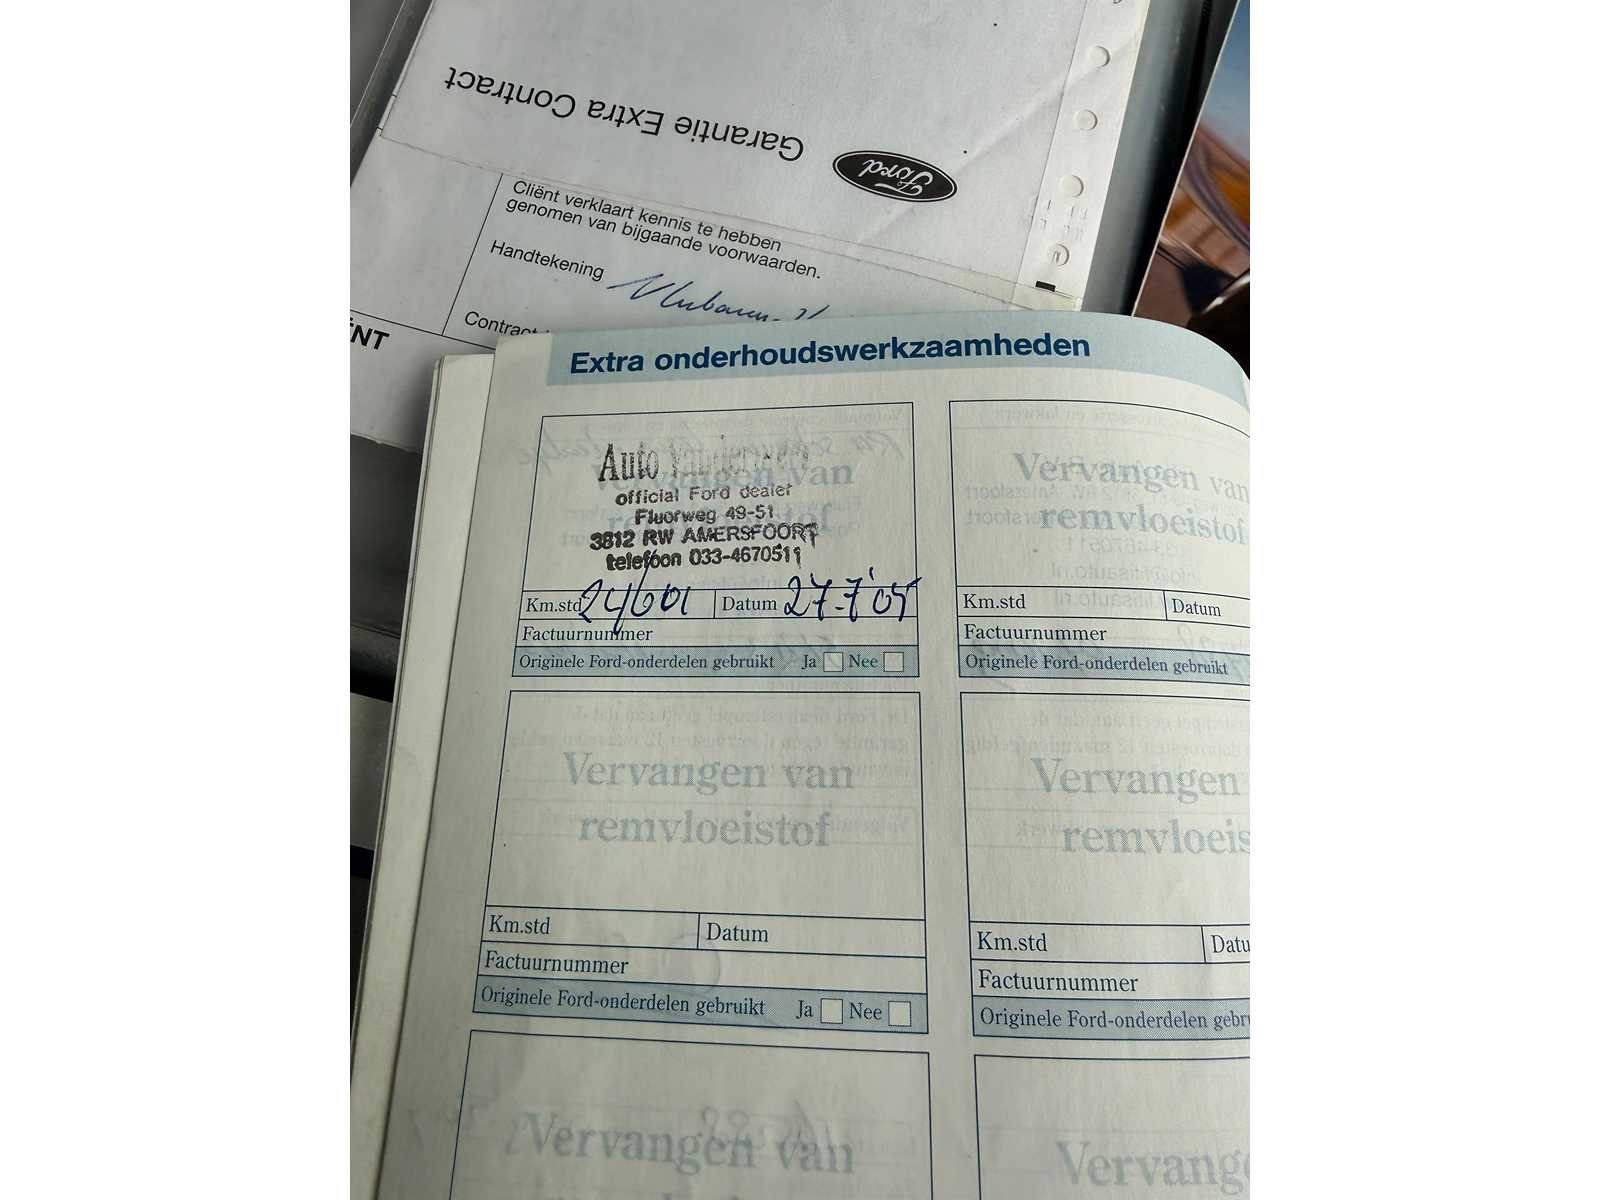 Garantie Extra Contract
Ford
Cliënt verklaart kennis te hebben
genomen van bijgaande voorwaarden.
Handtekening
Contract
ËNT
Extra onderhoudswerkzaamheden
Auto
official Ford dealer
Fluorweg 49-51
3812 RW AMERSFOORT
telefoon 033-4670511
Vervangen van
remvloeistof
Km.std Datum 27-7'05
Factuurnummer
Originele Ford-onderdelen gebruikt Ja Nee
Vervangen van
remvloeistof
Km.std Datum
Factuurnummer
Originele Ford-onderdelen gebruikt
Vervangen van
remvloeistof
Km.std Datum
Factuurnummer
Originele Ford-onderdelen gebruikt Ja Nee
Vervangen
remvloeis
Km.std Datu
Factuurnummer
Originele Ford-onderdelen gebru
Vervangen van
Vervang